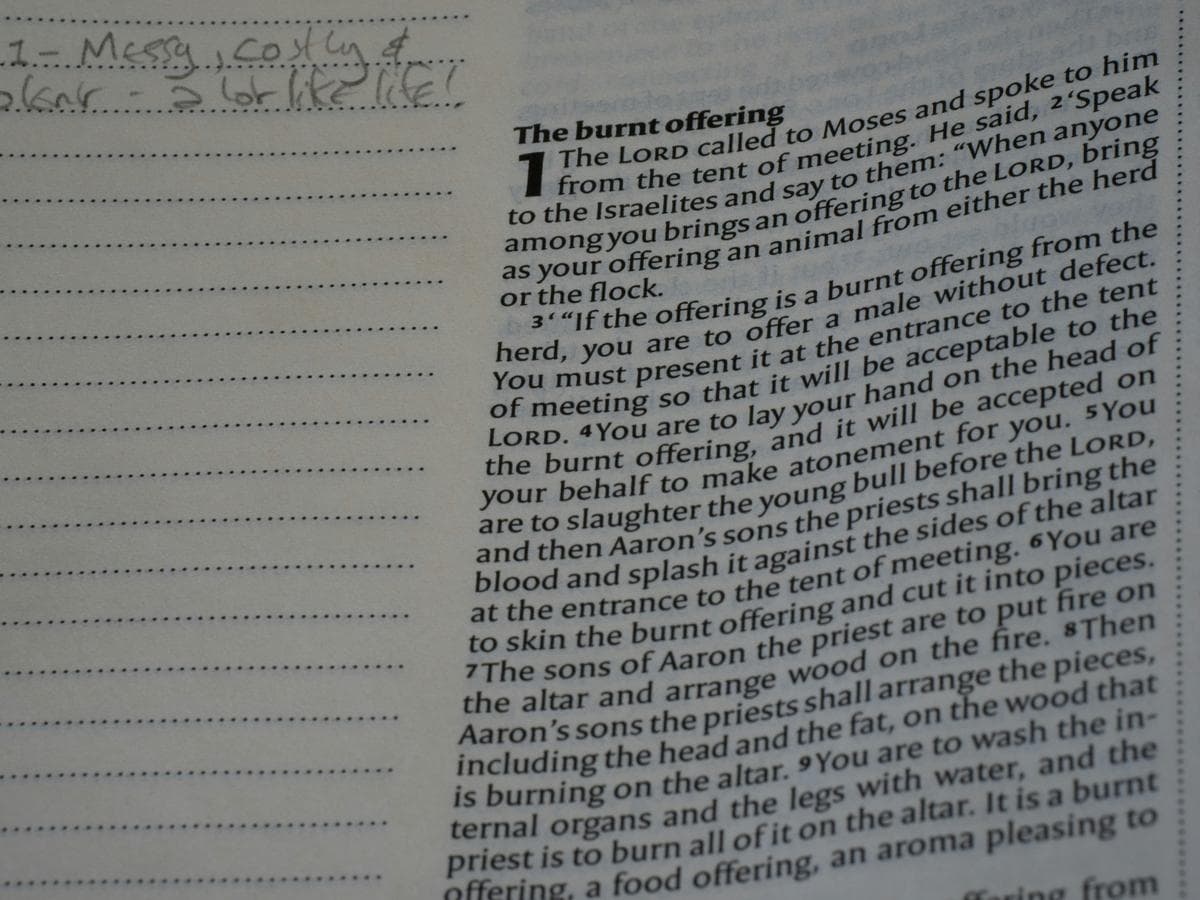 1 - Messy, costly &
- a lot like life!
The burnt offering
1 The LORD called to Moses and spoke to him
from the tent of meeting. He said, 2‘Speak
to the Israelites and say to them: “When anyone
among you brings an offering to the LORD, bring
as your offering an animal from either the herd
or the flock.
3‘“If the offering is a burnt offering from the
herd, you are to offer a male without defect.
You must present it at the entrance to the tent
of meeting so that it will be acceptable to the
LORD. 4You are to lay your hand on the head of
the burnt offering, and it will be accepted on
your behalf to make atonement for you. 5You
are to slaughter the young bull before the LORD,
and then Aaron’s sons the priests shall bring the
blood and splash it against the sides of the altar
at the entrance to the tent of meeting. 6You are
to skin the burnt offering and cut it into pieces.
7The sons of Aaron the priest are to put fire on
the altar and arrange wood on the fire. 8Then
Aaron’s sons the priests shall arrange the pieces,
including the head and the fat, on the wood that
is burning on the altar. 9You are to wash the in-
ternal organs and the legs with water, and the
priest is to burn all of it on the altar. It is a burnt
offering, a food offering, an aroma pleasing to
from